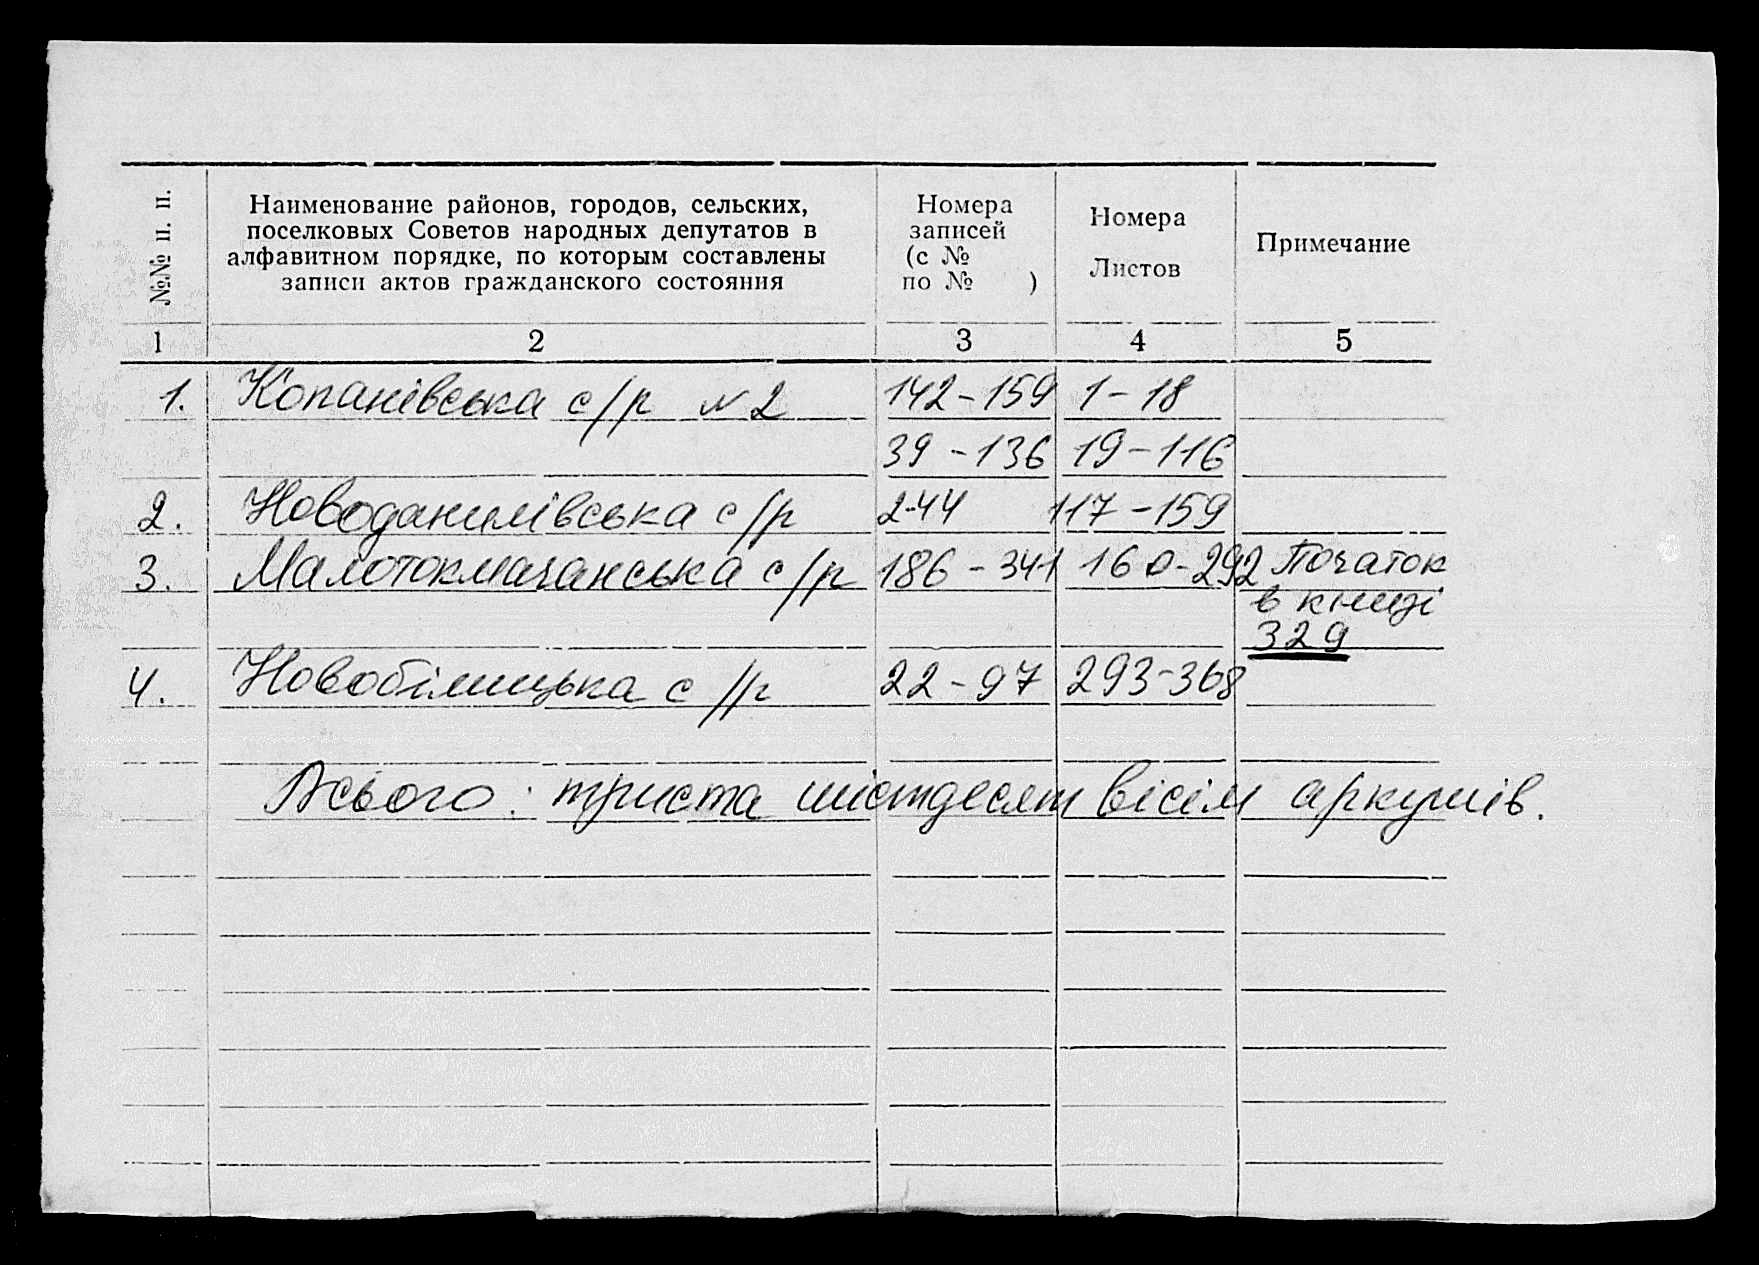 №№ п. п.
Наименование районов, городов, сельских,
поселковых Советов народных депутатов в
алфавитном порядке, по которым составлены
записи актов гражданского состояния
Номера
записей
(с №
по № )
Номера
Листов
Примечание
1 2 3 4 5
1. Копанівська с/р №2 142-159 1-18
39-136 19-116
2. Новоданилівська с/р 2-44 117-159
3. Малотокмачанська с/р 186-341 160-292 Початок
в книзі
329
4. Новобілицька с/р 22-97 293-368
Всього: триста шістдесят вісім аркушів.